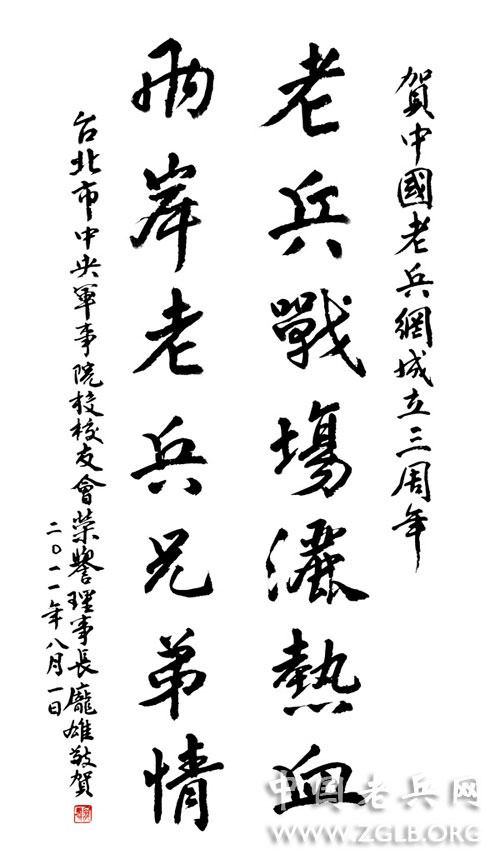 賀中國老兵網成立三周年
老兵戰場灑熱血
兩岸老兵兄弟情
台北市中央軍事院校校友會榮譽理事長龐雄敬賀
二〇一一年八月一日
中国老兵网
WWW.ZGLB.ORG